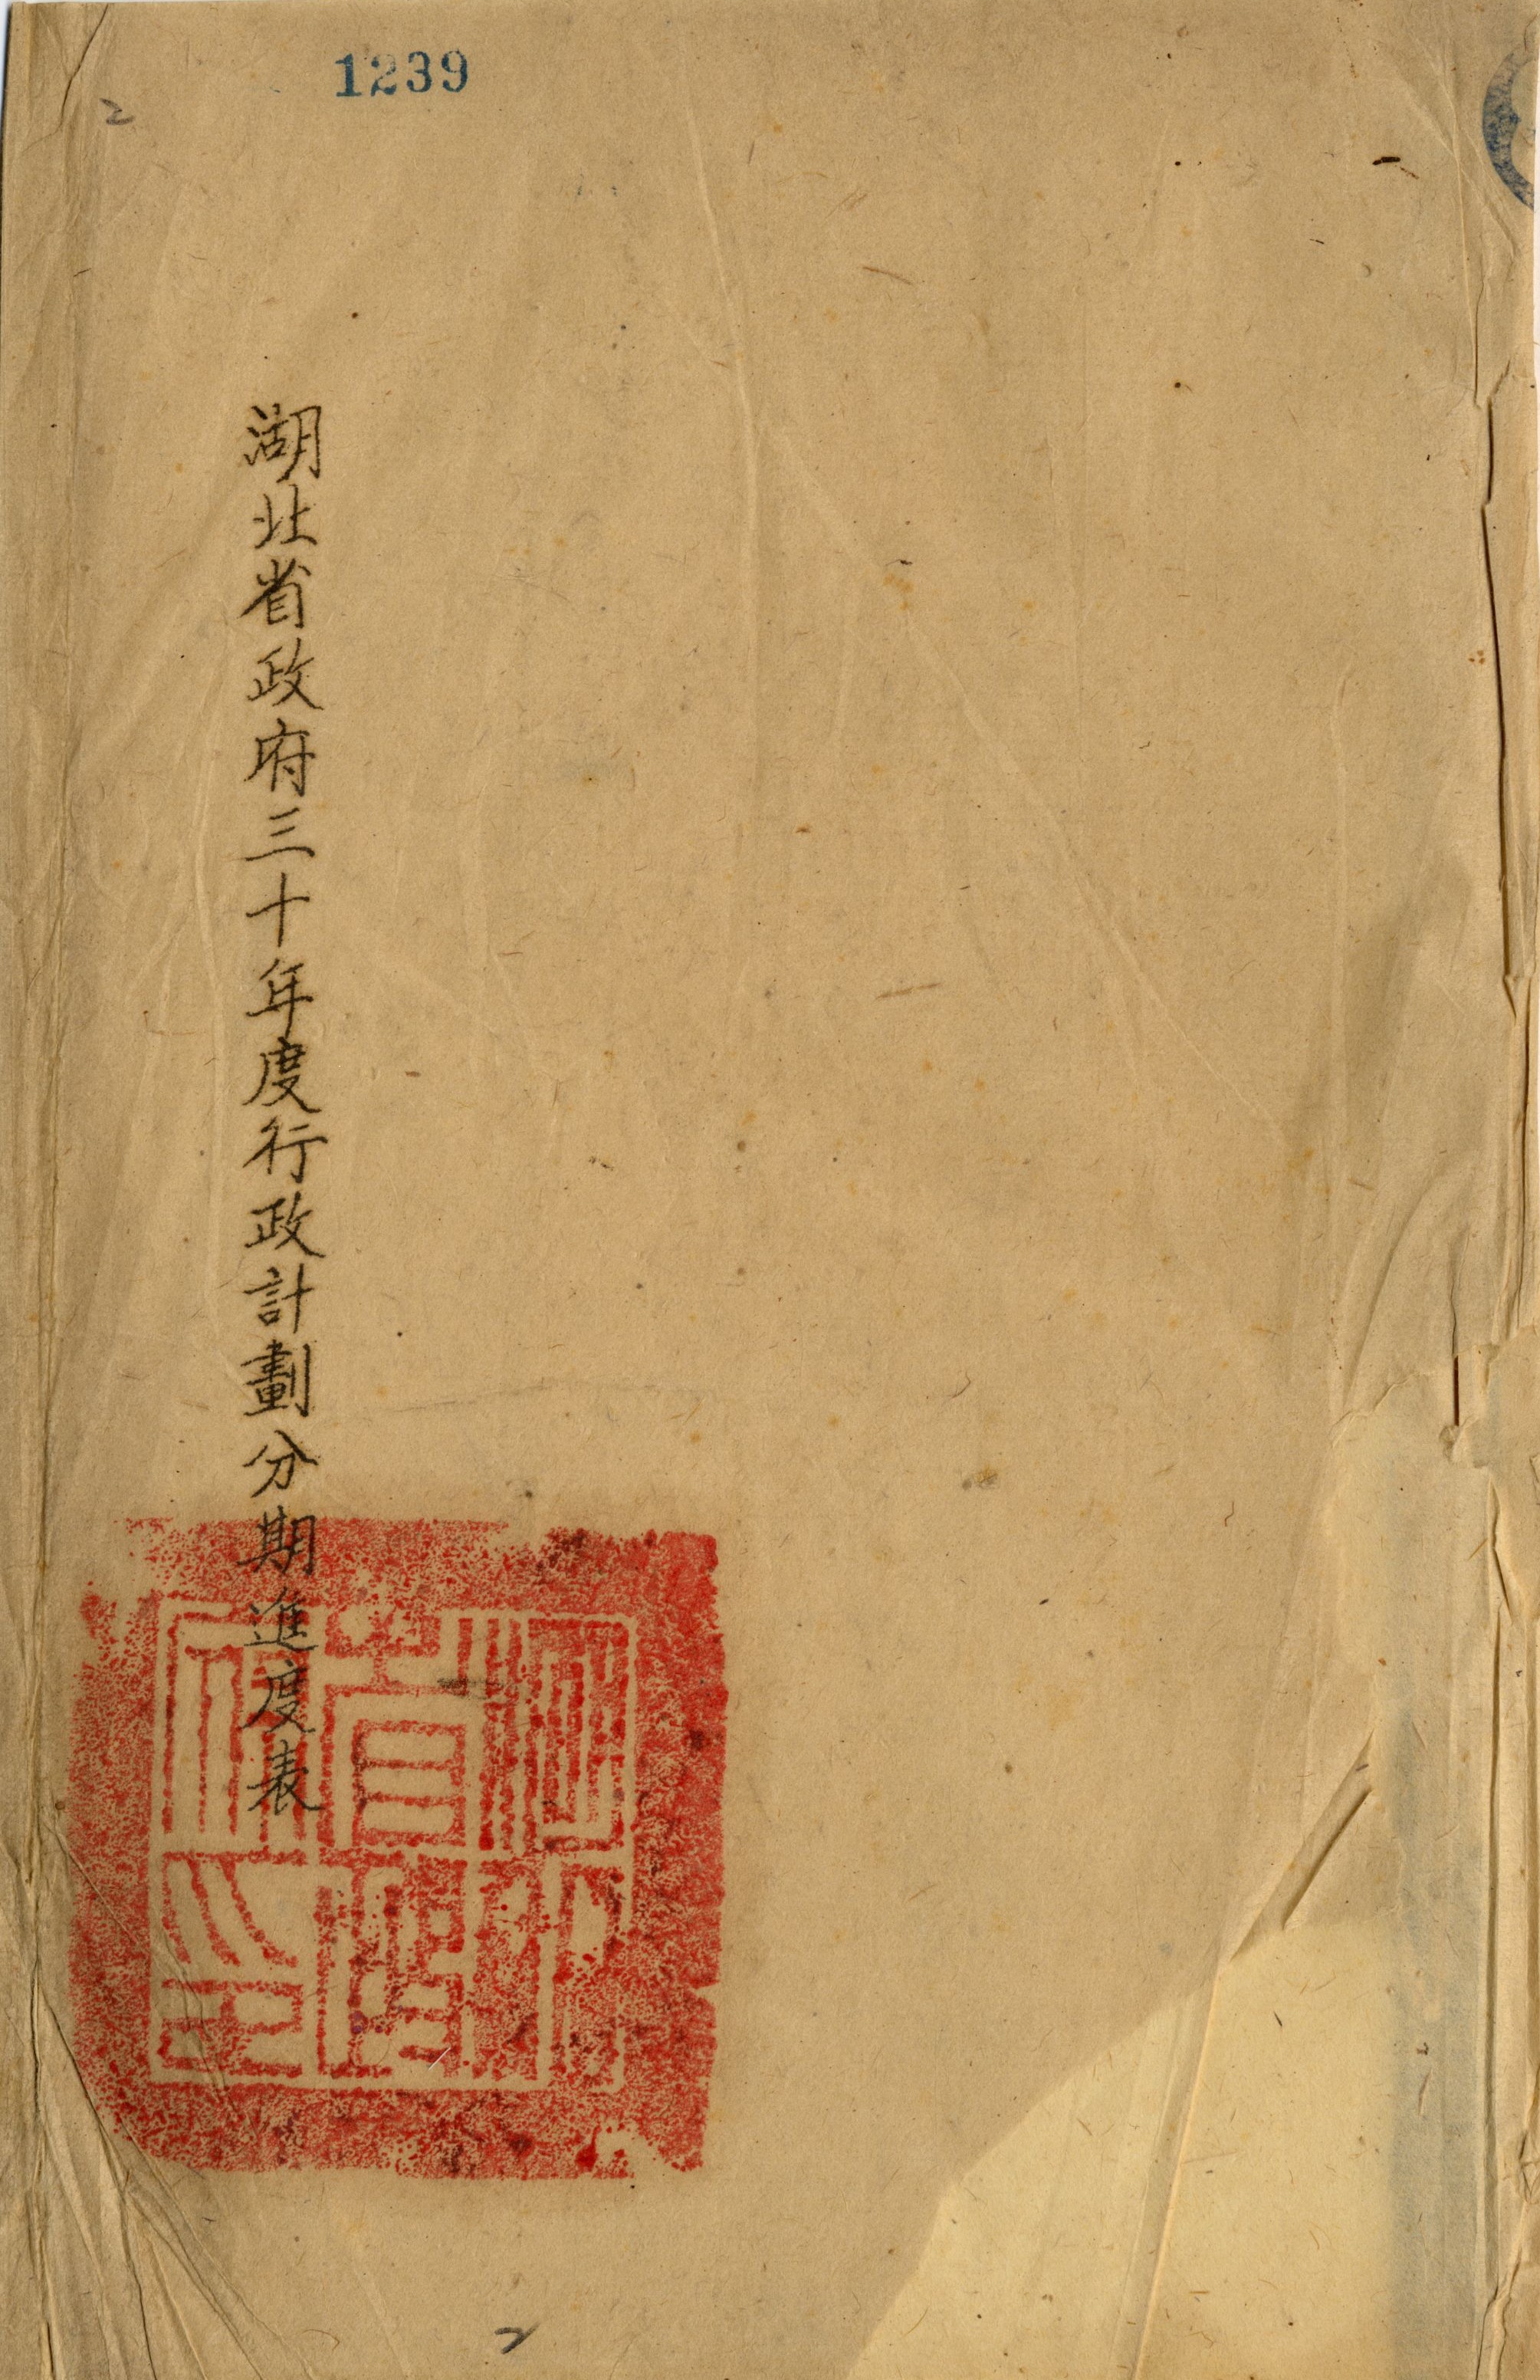 1239
2
湖北省政府三十年度行政計劃分期進度表
湖北
省政
府之印
2